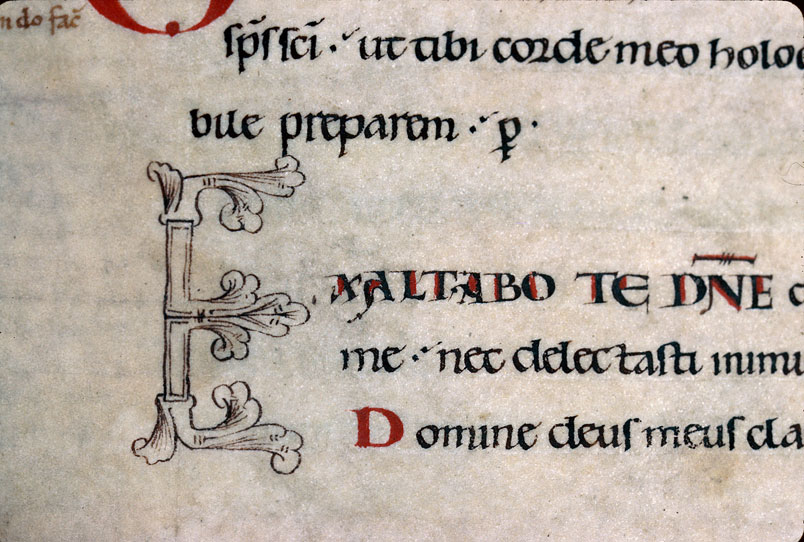 ndo fac̄
sp̄s sc̄i. ut tibi corde meo holoc
bue preparem. p̱.
EXALTABO TE DN̄E c
me. nec delectasti inimi
Domine deus meus cla